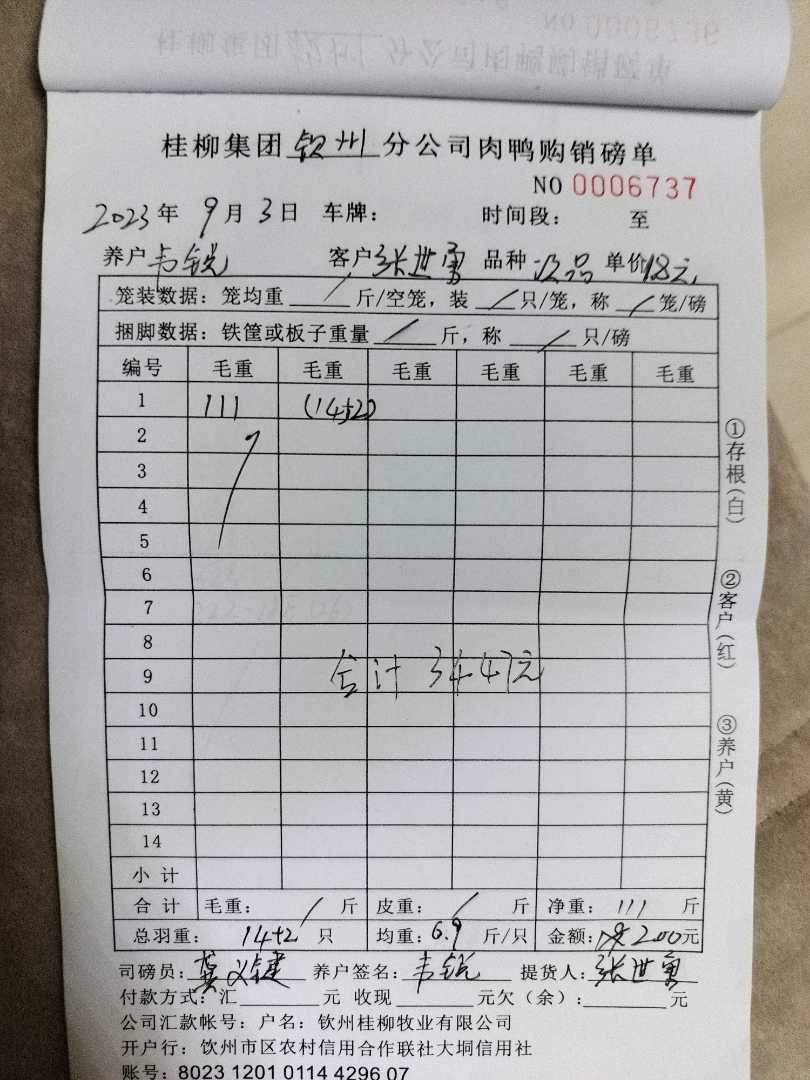 桂柳集团钦州分公司肉鸭购销磅单
NO 0006737
2023年 9月 3日 车牌: 时间段: 至
养户韦锐 客户张世勇 品种次品 单价18元
笼装数据: 笼均重 / 斤/空笼, 装 / 只/笼, 称 / 笼/磅
捆脚数据: 铁筐或板子重量 / 斤, 称 / 只/磅
编号 毛重 毛重 毛重 毛重 毛重 毛重
1 111 (14+2)
2
3
4
5
6
7
8
9 合计 3447元
10
11
12
13
14
小 计
合 计 毛重: / 斤 皮重: / 斤 净重: 111 斤
总羽重: 14+2 只 均重: 6.9 斤/只 金额: 200元
司磅员: 龚义键 养户签名: 韦锐 提货人: 张世勇
付款方式: 汇 元 收现 元欠(余): 元
公司汇款帐号: 户名: 钦州桂柳牧业有限公司
开户行: 钦州市区农村信用合作联社大垌信用社
账号: 8023 1201 0114 4296 07
①存根(白)
②客户(红)
③养户(黄)